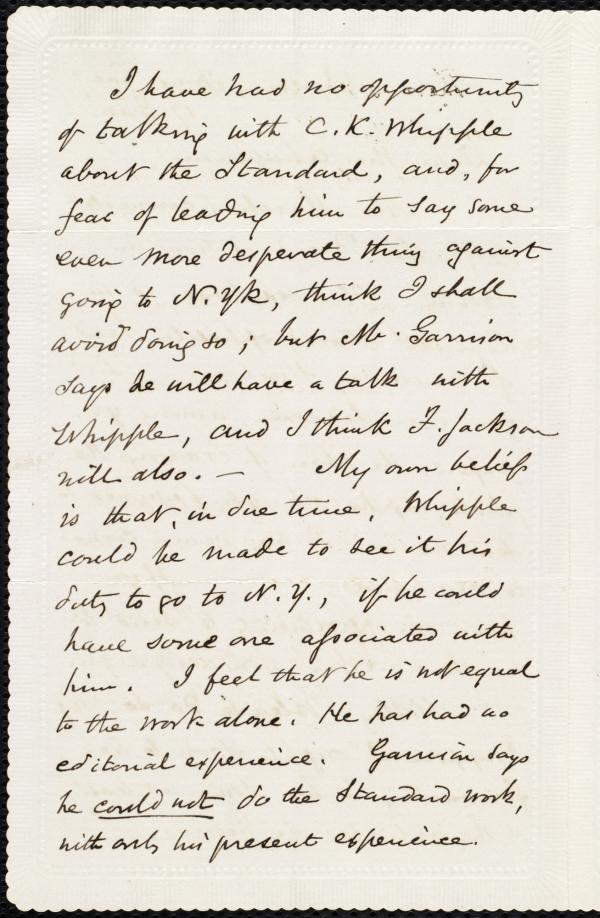 I have had no opportunity
of talking with C. K. Whipple
about the Standard, and, for
fear of leading him to say some
even more desperate thing against
going to N. Yk, think I shall
avoid doing so; but Mr. Garrison
says he will have a talk with
Whipple, and I think F. Jackson
will also. — My own belief
is that, in due time, Whipple
could be made to see it his
duty to go to N. Y., if he could
have some one associated with
him. I feel that he is not equal
to the work alone. He has had no
editorial experience. Garrison says
he could not do the Standard work,
with only his present experience.